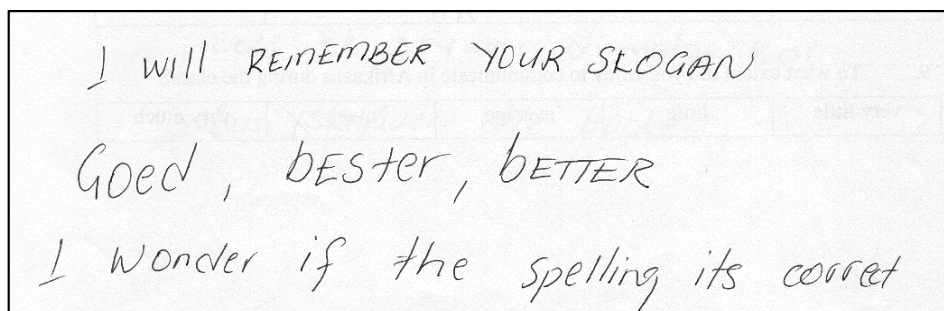 I will REMEMBER YOUR SLOGAN
Goed, bester, bETTER
I wonder if the spelling its correct